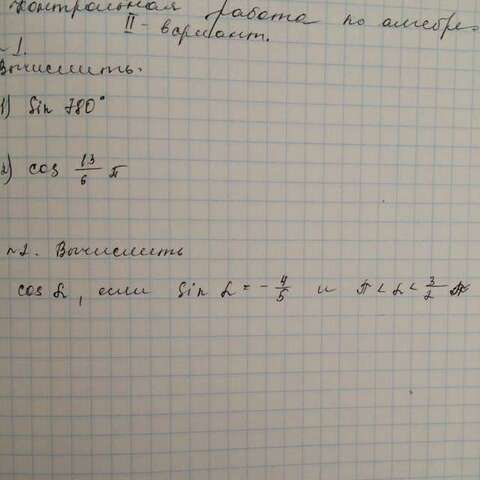 Контрольная работа по алгебре.
II - вариант.
№1.
Вычислить.
1) Sin 780°
2) cos 13/6 π
№2. Вычислить
cos α, если Sin α = -4/5 и π < α < 3/2 π